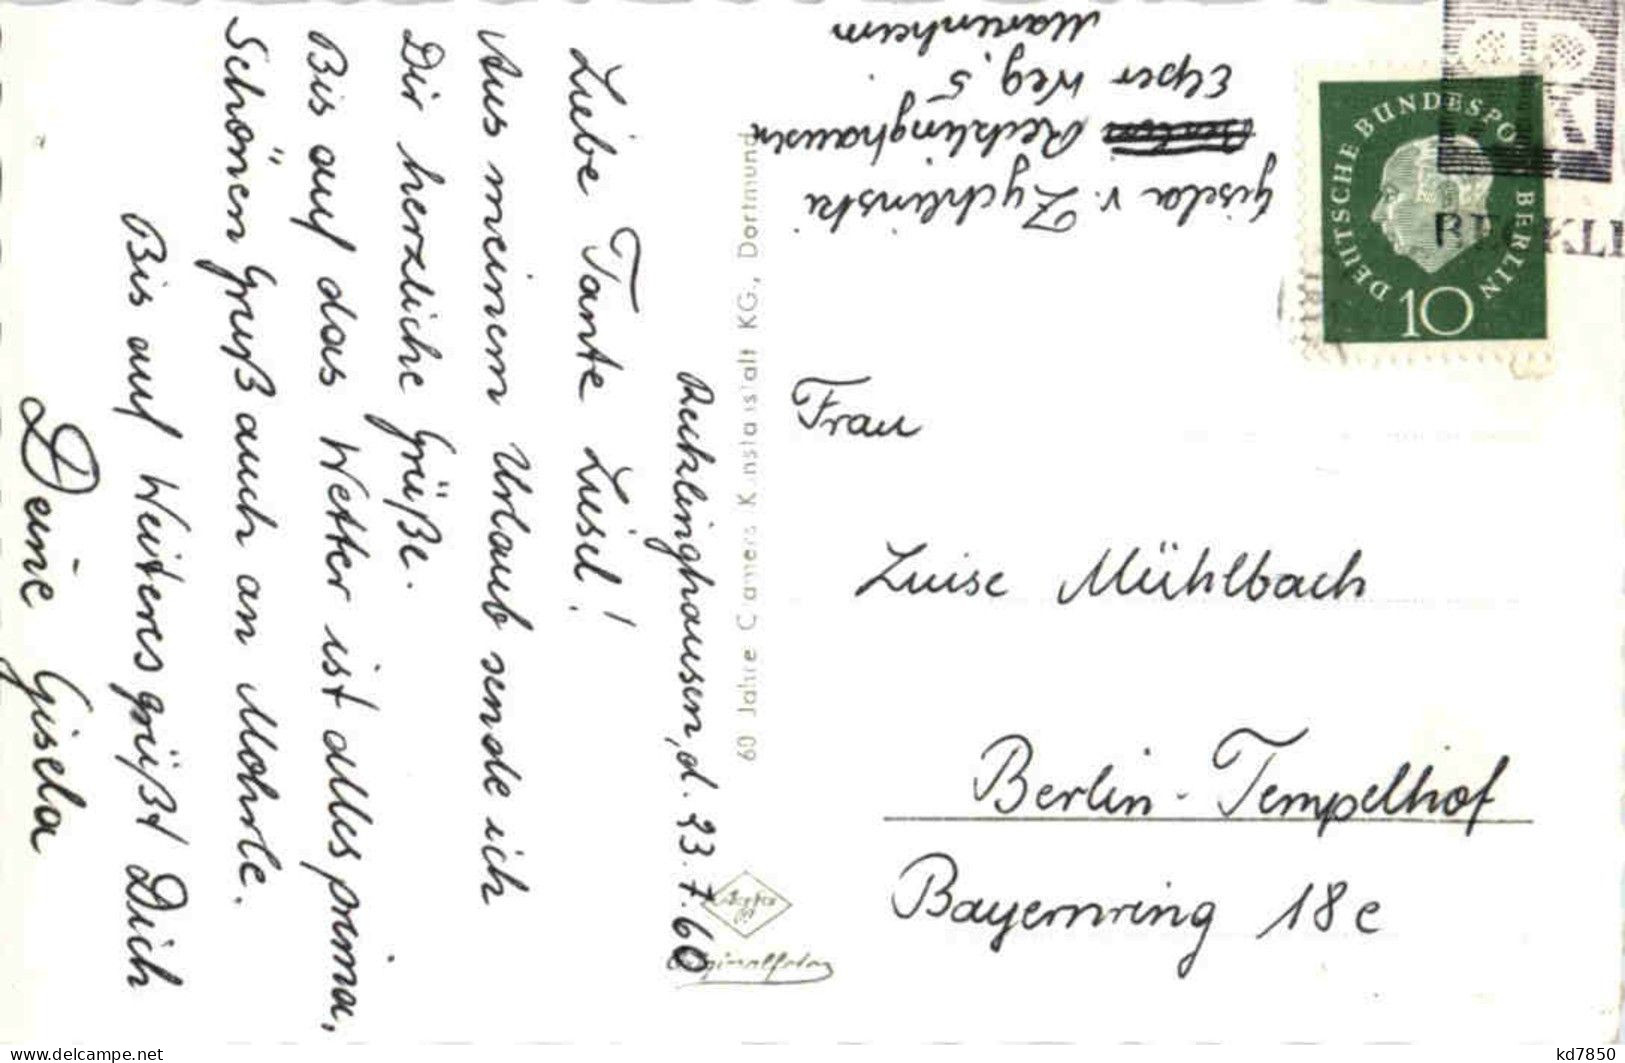 Recklinghausen, d. 23.7.60
Liebe Tante Liesel!
Aus meinem Urlaub sende ich
Dir herzliche Grüße.
Bis auf das Wetter ist alles prima,
Schönen Gruß auch an Mohrle.
Bis auf Weiteres grüßt Dich
Deine Gisela
60 Jahre Cramers Kunstanstalt KG., Dortmund
Originalfoto
Gisela v. Zychlinski
Recklinghausen
Elper Weg 5
Marienheim
DEUTSCHE BUNDESPO BERLIN
10
RECKLI
Frau
Luise Mühlbach
Berlin-Tempelhof
Bayernring 18c
www.delcampe.net
kd7850